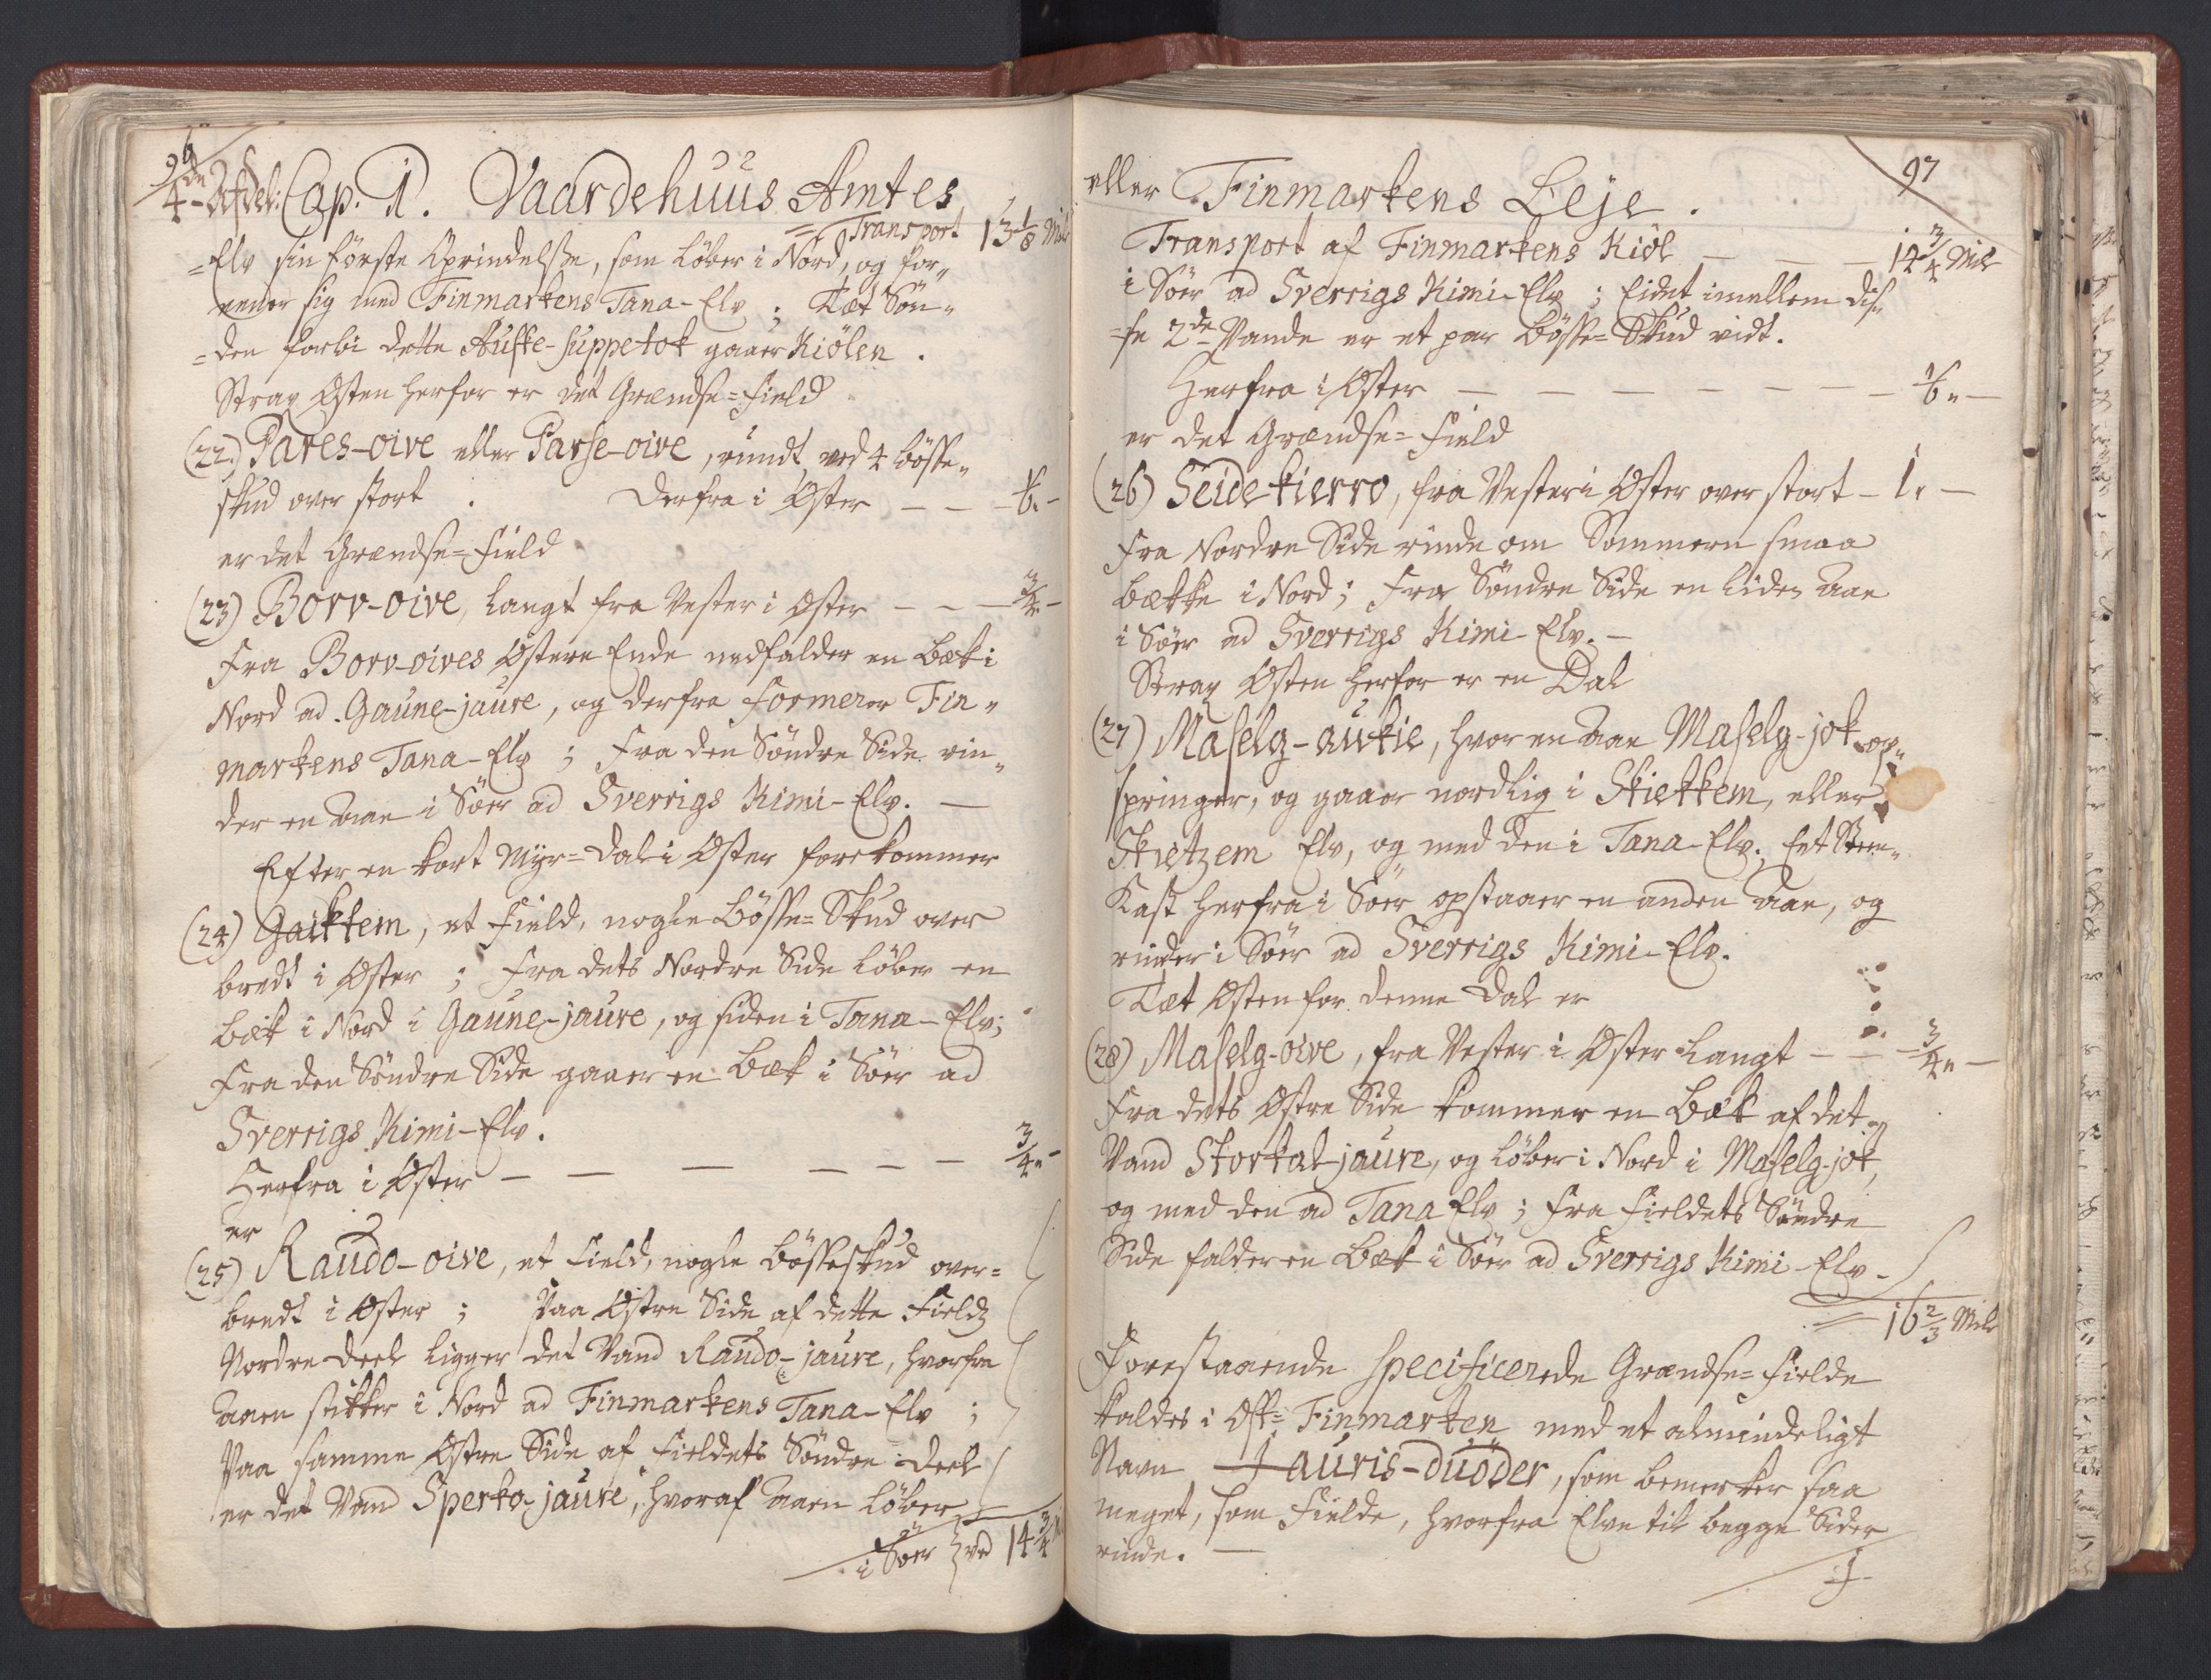 96
4de Afdel: Cap. 1. Vaardehuus Amtes
Transport 13 1/8 Mil
=Elv sin første Oprindelsse, som løber i Nord, og for„
eener sig med Finmarkens Tana-Elv; Tæt Søn„
=den forbi dette Auske-suppetok gaaer Kiölen.
Strax Østen herfor er det Grændse=Field
(22.) Pares-oive eller Parse-oive, rundt, ved 4 bösse„
skud over stort. Derfra i Øster – – – 1/6 „ –
er det Grændse=Field
(23) Borv-oive, langt fra Vester i Øster – – – 3/4 „ –
Fra Borv-oives Østere Ende nedfalder en Bæk i
Nord ad Gaune-jaure, og derfra formerer Fin„
markens Tana-Elv; Fra den Söndre Side rin„
der en Aae i Söer ad Sverrigs Kimi-Elv. –
Efter en kort Myr=Dal i Øster forekommer
(24) Gaiktem, et Field, nogle Bösse=Skud over
bredt i Øster; Fra dets Nordre Side løber en
Bæk i Nord i Gaune-jaure, og siden i Tana-Elv;
Fra den Söndre Side gaaer en Bæk i Söer ad
Sverrigs Kimi-Elv.
Herfra i Øster – – – – – – 3/4 „ –
er
(25) Raudo-oive, et Field, nogle Bösseskud over=
bredt i Øster; Paa Østre Side af dette Fields
Nordre Deel ligger det Vand Raudo-jaure, hvorfra
Aaen stikker i Nord ad Finmarkens Tana-Elv;
Paa samme Østre Side af Fieldets Söndre Deel
er det Vand Sperko-jaure, hvoraf Aaen løber
i Söer 14 3/4
97
eller Finmarkens Leje.
Transport af Finmarkens Kiöl – – – 14 3/4 Mil
i Söer ad Sverrigs Kimi-Elv; Eidet imellem dis„
=se 2de Vande er et par Bösse=Skud vidt.
Herfra i Øster – – – – – – – 1/6 „ –
er det Grændse=Field
(26) Seide-kierro, fra Vester i Øster over stort – 1 „ –
Fra Nordre Side rinde om Sommern smaa
Bække i Nord; Fra Söndre Side en liden Aae
i Söer ad Sverrigs Kimi-Elv. –
Strax Østen herfor er en Dal
(27) Maselg-aukie, hvor en Aae Maselg-jok op„
springer, og gaaer nordlig i Skiekkem, eller
Skietzem Elv, og med den i Tana-Elv. Et Steen„
Kast herfra i Söer opstaaer en anden Aae, og
rinder i Söer ad Sverrigs Kimi-Elv.
Tæt Østen for denne Dal er
(28) Maselg-oive, fra Vester i Øster langt – – 3/4 „ –
Fra dets Østre Side kommer en Bæk af det
Vand Storkal-jaure, og løber i Nord i Maselg-jok,
og med den ad Tana Elv; Fra Fieldets Söndre
Side falder en Bæk i Söer ad Sverrigs Kimi-Elv.
16 2/3 Mil
Forestaaende specificerede Grændse=Fielde
kaldes i Øst=Finmarken med et almindeligt
Navn Jauris-duöder, som bemerker saa
meget, som Fielde, hvorfra Elve til begge Sider
rinde. –
J.